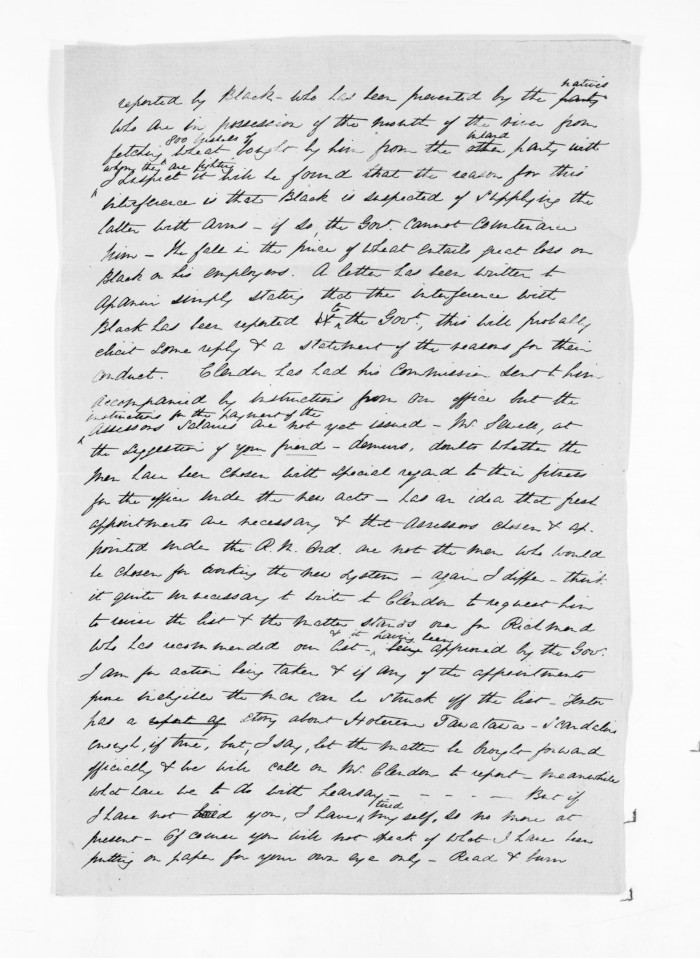 natives
reported by Black - who has been prevented by the party
who are in possession of the mouth of the river from
800 bushels of inland
fetching wheat bought by him from the other party with
whom they are fighting
I suspect it will be found that the reason for this
interference is that Black is suspected of supplying the
latter with Arms - if so, the Govt. cannot countenance
him - The fall in the price of wheat entails great loss on
Black or his employers. A letter has been written to
Apanui simply stating that the interference with
to
Black has been reported the Govt., this will probably
elicit some reply & a statement of the reasons for their
conduct. Clendon has had his Commission sent to him
accompanied by instructions from our office but the
instructions for the payment of the
Assessors salaries are not yet issued - Mr. at
the suggestion of your friend - demurs, doubts whether the
men have been chosen with special regard to their fitness
for the office under the new acts - has an idea that fresh
appointments are necessary & that assessors chosen & ap-
pointed under the R.M. Ord. are not the men who would
be chosen for working the new system - again I differ - think
it quite unnecessary to write to Clendon to request him
to revise the list & the matter stands over for Richmond
& it having been
who has recommended our list - being approved by the Gov.
I am for action being taken & if any of the appointments
prove ineligible the men can be struck off the list -
has a report of story about Hoterene Tawatawa - Scandalous
enough, if true, but, I say, let the matter be brought forward
officially & we will call on Mr. Clendon to report - meanwhile
what have we to do with hearsay - - - - - But if
tired
I have not tired you, I have myself, so no more at
present - Of course you will not speak of what I have been
putting on paper for your own eye only - Read & burn